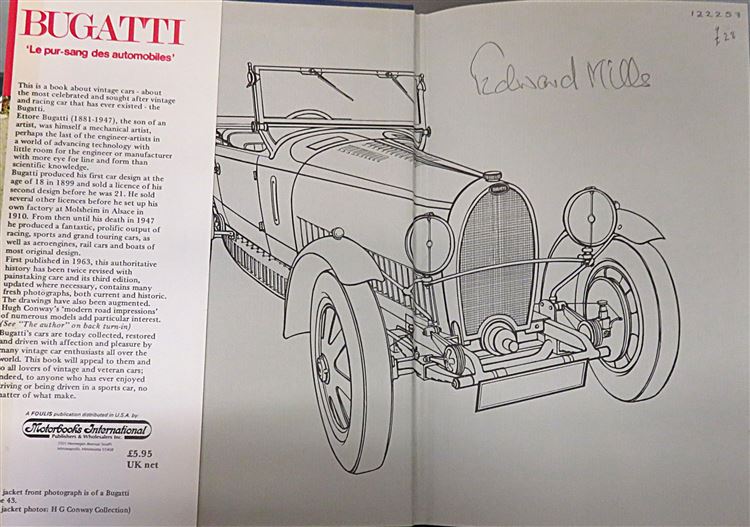 BUGATTI
'Le pur-sang des automobiles'
This is a book about vintage cars - about
the most celebrated and sought after vintage
and racing car that has ever existed - the
Bugatti.
Ettore Bugatti (1881-1947), the son of an
artist, was himself a mechanical artist,
perhaps the last of the engineer-artists in
a world of advancing technology with
little room for the engineer or manufacturer
with more eye for line and form than
scientific knowledge.
Bugatti produced his first car design at the
age of 18 in 1899 and sold a licence of his
second design before he was 21. He sold
several other licences before he set up his
own factory at Molsheim in Alsace in
1910. From then until his death in 1947
he produced a fantastic, prolific output of
racing, sports and grand touring cars, as
well as aeroengines, rail cars and boats of
most original design.
First published in 1963, this authoritative
history has been twice revised with
painstaking care and its third edition,
updated where necessary, contains many
fresh photographs, both current and historic.
The drawings have also been augmented.
Hugh Conway's 'modern road impressions'
of numerous models add particular interest.
(See "The author" on back turn-in)
Bugatti's cars are today collected, restored
and driven with affection and pleasure by
many vintage car enthusiasts all over the
world. This book will appeal to them and
o all lovers of vintage and veteran cars;
ndeed, to anyone who has ever enjoyed
riving or being driven in a sports car, no
atter of what make.
A FOULIS publication distributed in U.S.A. by:
Motorbooks International
Publishers & Wholesalers Inc.
Minneapolis, Minnesota
£5.95
UK net
jacket front photograph is of a Bugatti
e 43.
jacket photos: H G Conway Collection)
122257
£28
Edward Mills
BUGATTI